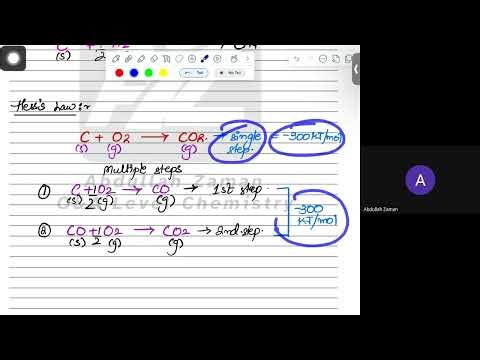 C + 1/2 O2
(s)
Hess's Law:-
C + O2 → CO2. → single step. = -300KJ/mol
(s) (g) (g)
Multiple steps
① C + 1/2 O2 → CO → 1st step.
(s) (g) (g)
② CO + 1/2 O2 → CO2 → 2nd step.
(s) (g) (g)
-300
KJ/mol
Abdullah Zaman
Level Chemistry
Text
No Fill
A
Abdullah Zaman